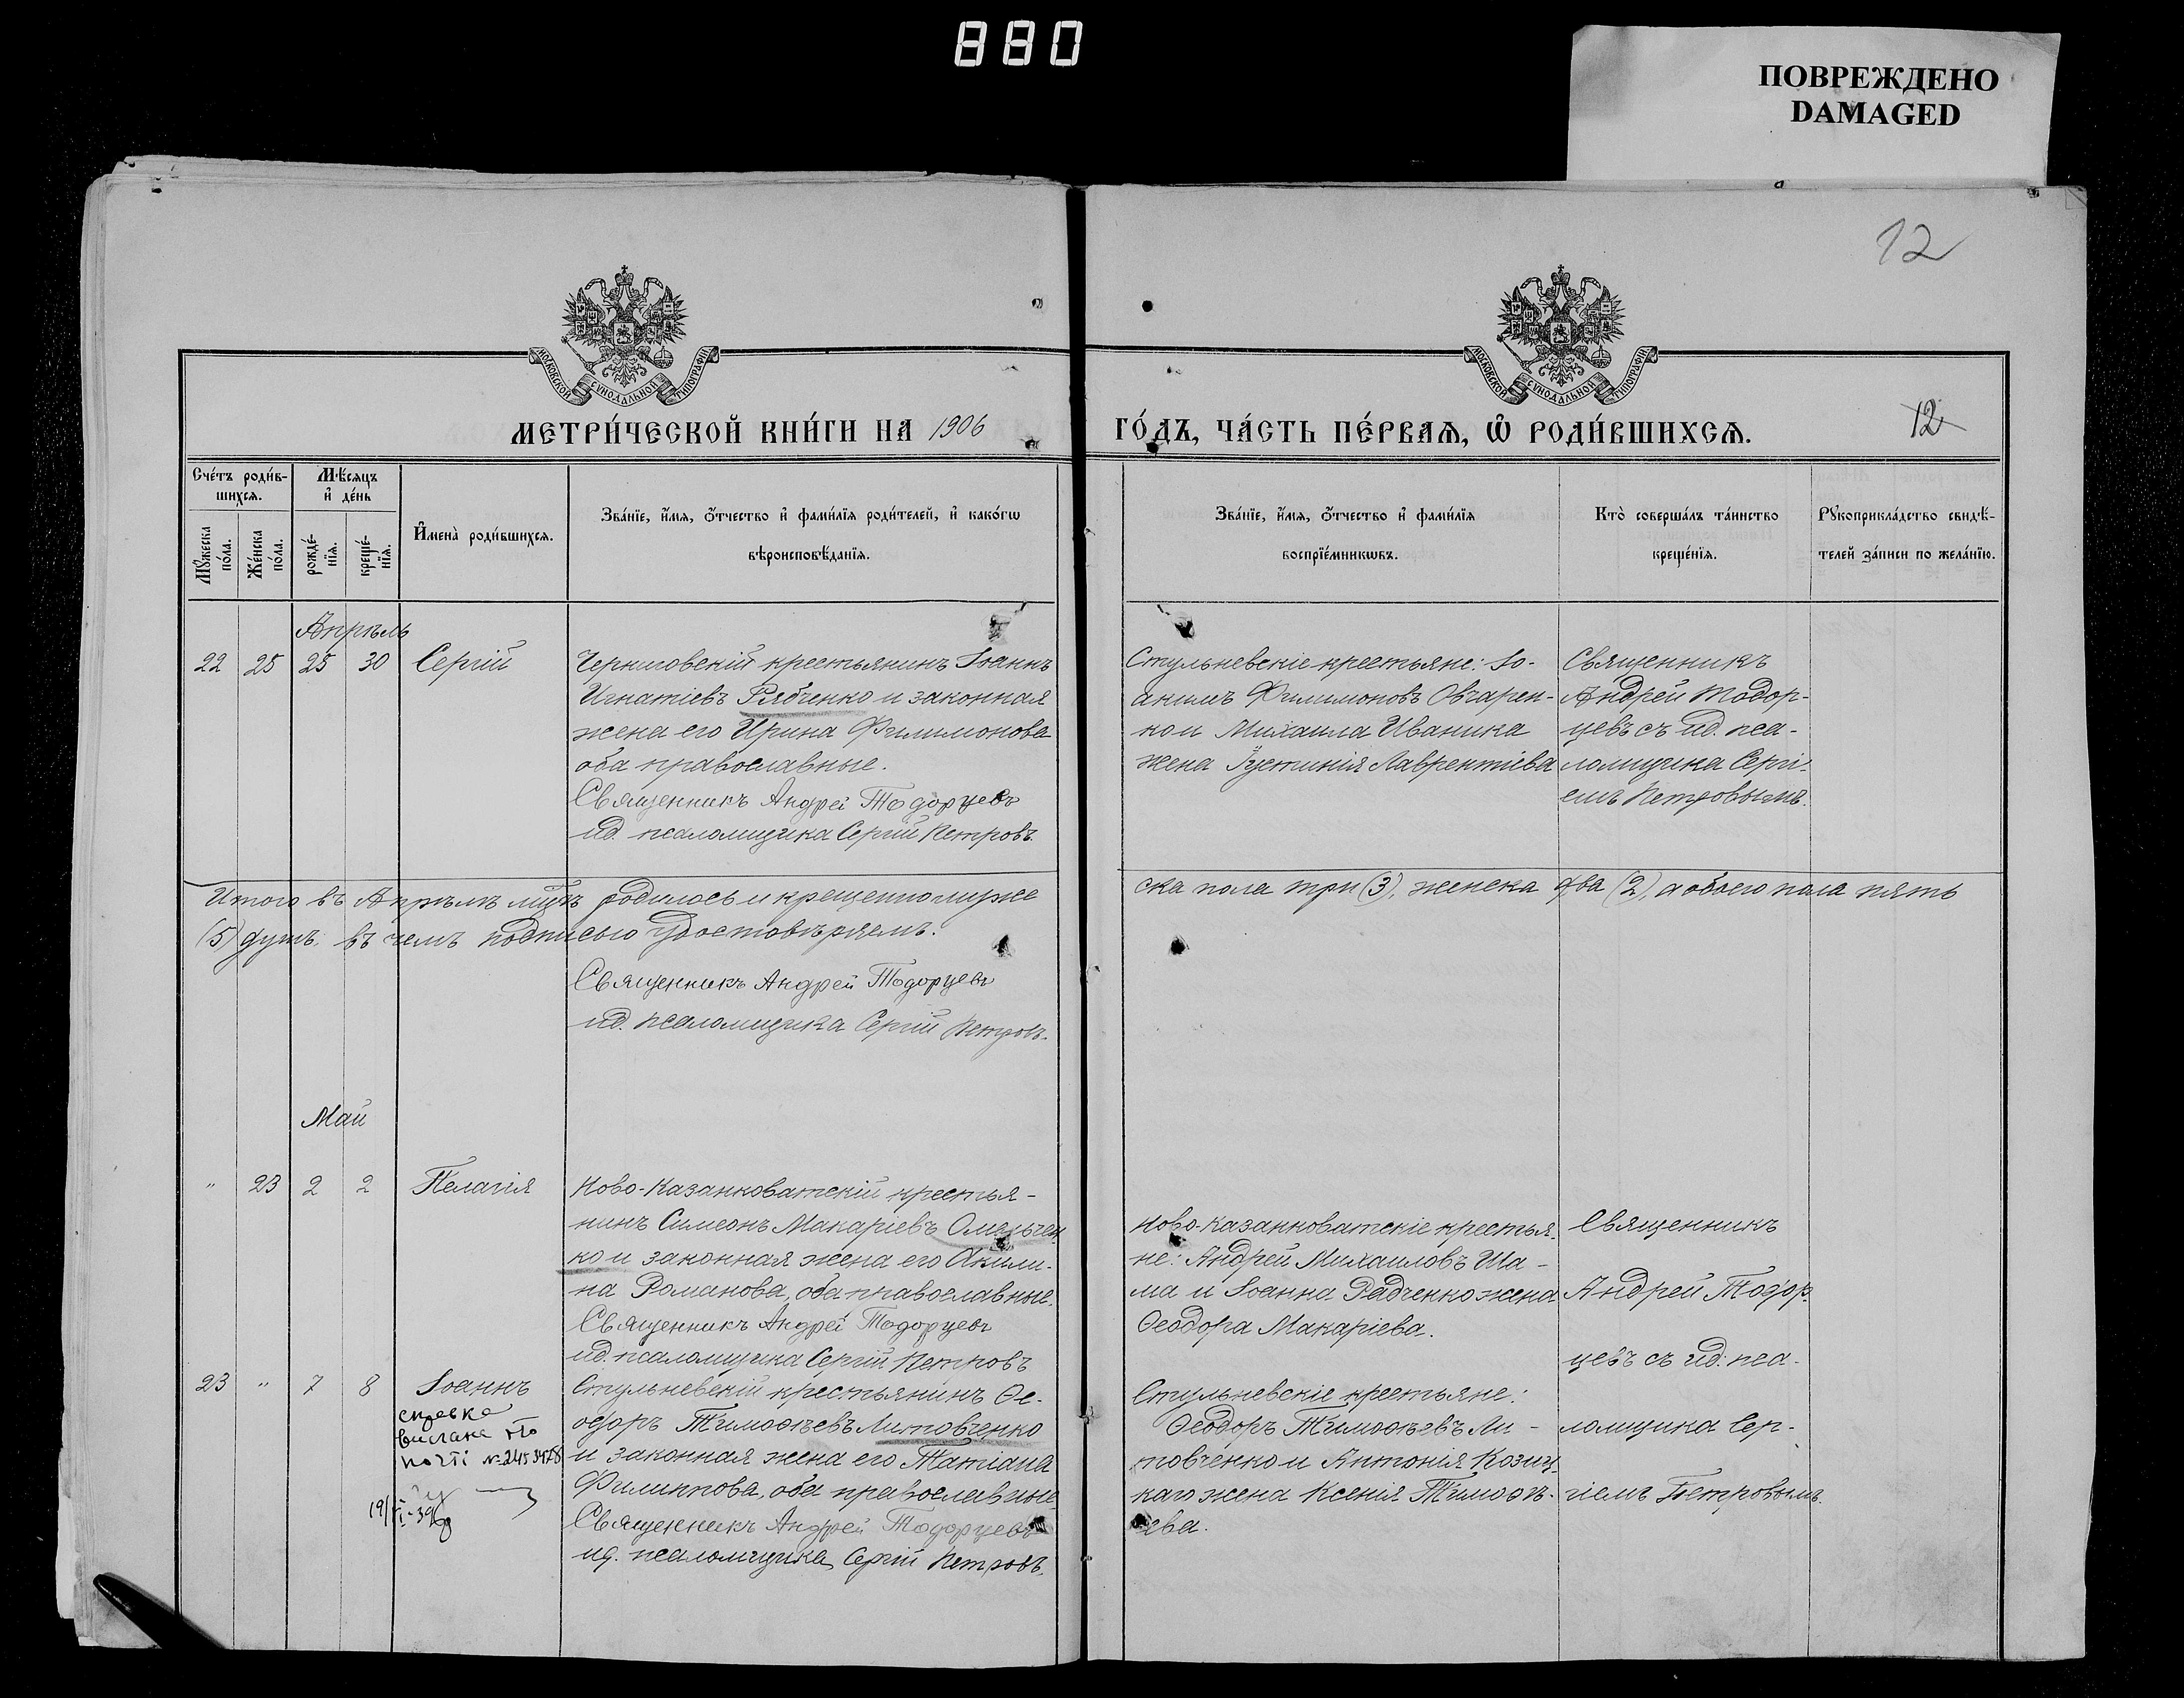 880
ПОВРЕЖДЕНО
DAMAGED
12
МОСКОВСКОЙ СУНОДАЛЬНОЙ ТИПОГРАФІИ
МОСКОВСКОЙ СУНОДАЛЬНОЙ ТИПОГРАФІИ
МЕТРИ́ЧЕСКОЙ КНИ́ГИ НА 1906
ГО́ДЪ, ЧА́СТЬ ПЕ́РВАѦ, Ѡ҆ РОДИ́ВШИХСѦ.
12
Сче́тъ роди́в-
шихсѧ.
Мѣ́сяцъ
и҆ де́нь
Мꙋ́жеска
по́ла.
Же́нска
по́ла.
рожде́-
нїѧ.
креще́-
нїѧ.
И҆мена̀ роди́вшихсѧ.
Зва́нїе, и҆́мѧ, ѻ҆́тчество и҆ фами́лїѧ роди́телей, и҆ како́гѡ
вѣроисповѣ́данїѧ.
Зва́нїе, и҆́мѧ, ѻ҆́тчество и҆ фами́лїѧ
воспрїе́мникѡвъ.
Кто̀ соверша́лъ та́инство
креще́нїѧ.
Рꙋкоприкла́дство свидѣ́-
телей за́писи по жела́нїю.
Апрѣль
22 25 25 30 Сергій
Черниговскій крестьянинъ Іоаннъ
Игнатіевъ Рябченко и законная
жена его Ирина Филимонова
оба православные.
Священникъ Андрей Тодорцевъ
ид. псаломщика Сергій Петровъ.
Стульневскіе крестьяне: Іо-
акимъ Филимоновъ Овчарен-
ко и Михаила Иваника
жена Іустинія Лаврентіева
Священникъ
Андрей Тодор-
цевъ съ ид. пса-
ломщика Сергі-
емъ Петровымъ.
Итого въ Апрѣлѣ мцѣ родилось и крещенно муже
ска пола три (3), женска два (2), а обоего пола пять
(5) душъ, въ чемъ подписью удостовѣряемъ.
Священникъ Андрей Тодорцевъ
ид. псаломщика Сергій Петровъ.
Май
" 23 2 2 Пелагія
Ново-Казанковатскій крестья-
нинъ Симеонъ Макаріевъ Омельчен-
ко и законная жена его Акили-
на Романова, оба православные.
Священникъ Андрей Тодорцевъ
ид. псаломщика Сергій Петровъ
Ново-Казанковатскіе крестья-
не: Андрей Михаиловъ Ша-
ма и Іоанна Радченко жена
Ѳеодора Макаріева.
Священникъ
Андрей Тодор-
цевъ съ ид. пса-
ломщика Сер-
гіемъ Петровымъ.
23 " 7 8 Іоаннъ
справка
вислана по
почті № 2453478
19/VI-39
Стульневскій крестьянинъ Ѳе-
одоръ Тимоѳѣевъ Литовченко
и законная жена его Татіана
Филиппова, оба православные
Священникъ Андрей Тодорцевъ
ид. псаломщика Сергій Петровъ.
Стульневскіе крестьяне:
Ѳеодоръ Тимоѳѣевъ Ли-
товченко и Антонія Козиц-
каго жена Ксенія Тимоѳѣ-
ева.